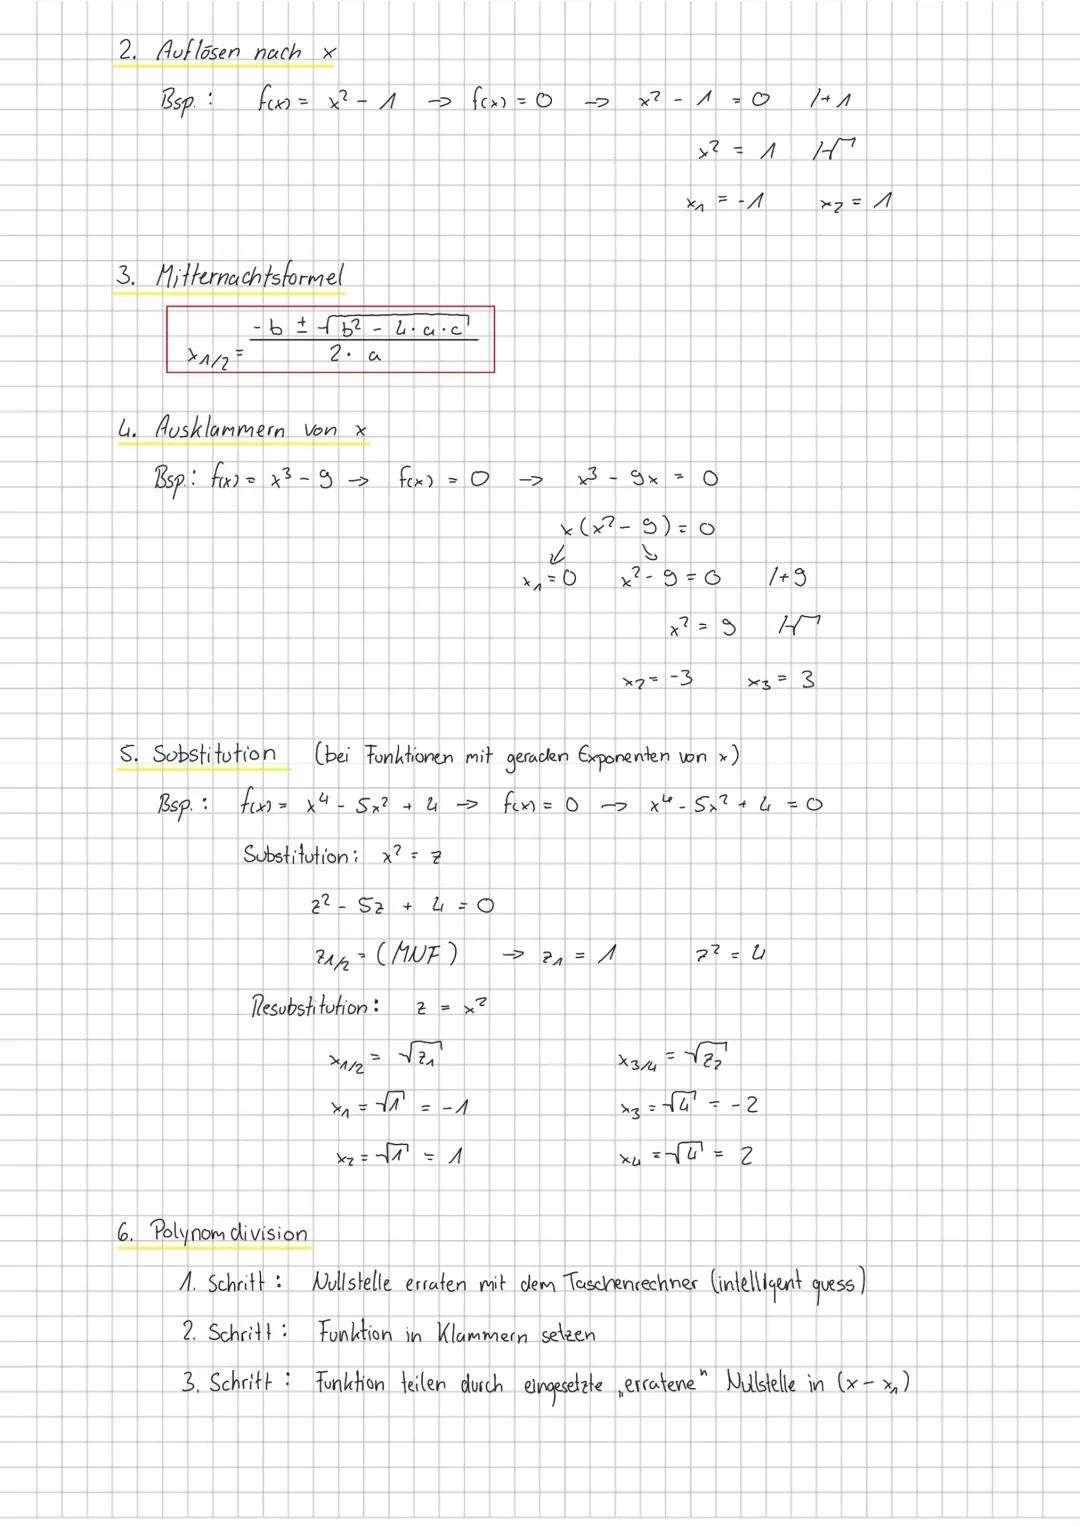 2. Auflösen nach x
Bsp.: f(x) = x² - 1 → f(x) = 0 → x² - 1 = 0 /+1
x² = 1 /√
x₁ = -1 x₂ = 1
3. Mitternachtsformel
x₁/₂ = (-b ± √(b² - 4·a·c)) / (2·a)
4. Ausklammern von x
Bsp.: f(x) = x³ - 9 → f(x) = 0 → x³ - 9x = 0
x(x² - 9) = 0
↙ ↘
x₁ = 0 x² - 9 = 0 /+9
x² = 9 /√
x₂ = -3 x₃ = 3
5. Substitution (bei Funktionen mit geraden Exponenten von x)
Bsp.: f(x) = x⁴ - 5x² + 4 → f(x) = 0 → x⁴ - 5x² + 4 = 0
Substitution: x² = z
z² - 5z + 4 = 0
z₁/₂ = (MNF) → z₁ = 1 z² = 4
Resubstitution: z = x²
x₁/₂ = √z₁ x₃/₄ = √z₂
x₁ = √1 = -1 x₃ = √4 = -2
x₂ = √1 = 1 x₄ = √4 = 2
6. Polynomdivision
1. Schritt: Nullstelle erraten mit dem Taschenrechner (intelligent guess)
2. Schritt: Funktion in Klammern setzen
3. Schritt: Funktion teilen durch eingesetzte „erratene" Nullstelle in (x - x₁)